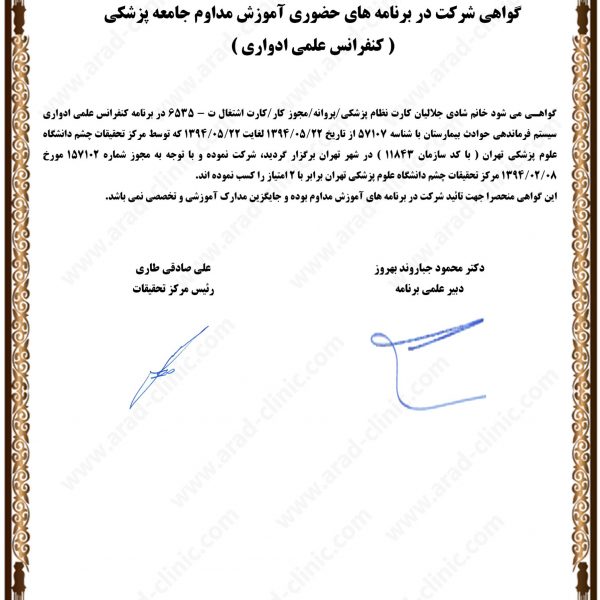 گواهی شرکت در برنامه های حضوری آموزش مداوم جامعه پزشکی
( کنفرانس علمی ادواری )
گواهـــی می شود خانم شادی جلالیان کارت نظام پزشکی/پروانه/مجوز کار/کارت اشتغال ت - ۶۵۳۵ در برنامه کنفرانس علمی ادواری
سیستم فرماندهی حوادث بیمارستان با شناسه ۵۷۱۰۷ از تاریخ ۱۳۹۴/۰۵/۲۲ لغایت ۱۳۹۴/۰۵/۲۲ که توسط مرکز تحقیقات چشم دانشگاه
علوم پزشکی تهران ( با کد سازمان ۱۱۸۴۳ ) در شهر تهران برگزار گردید، شرکت نموده و با توجه به مجوز شماره ۱۵۷۱۰۲ مورخ
۱۳۹۴/۰۲/۰۸ مرکز تحقیقات چشم دانشگاه علوم پزشکی تهران برابر با ۲ امتیاز را کسب نموده اند.
این گواهی منحصرا جهت تائید شرکت در برنامه های آموزش مداوم بوده و جایگزین مدارک آموزشی و تخصصی نمی باشد.
دکتر محمود جباروند بهروز
دبیر علمی برنامه
علی صادقی طاری
رئیس مرکز تحقیقات
www.arad-clinic.com